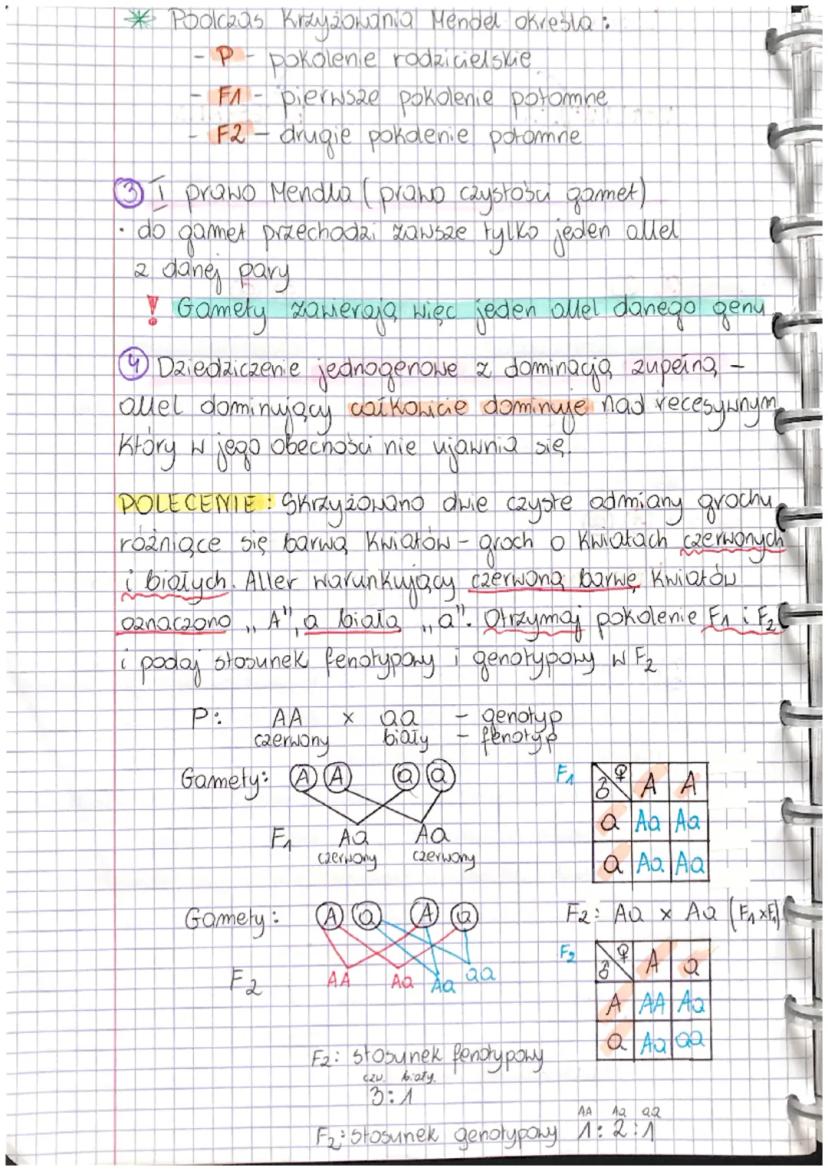 * Podczas Krzyżowania Mendel określa:
- P - pokolenie rodzicielskie
- F1 - pierwsze pokolenie potomne
- F2 - drugie pokolenie potomne
3 I prawo Mendla (prawo czystości gamet)
· do gamet przechodzi zawsze tylko jeden allel
z danej pary
! Gamety zawierają więc jeden allel danego genu
4 Dziedziczenie jednogenowe z dominacją zupełną -
allel dominujący całkowicie dominuje nad recesywnym,
który w jego obecności nie ujawnia się.
POLECENIE: Skrzyżowano dwie czyste odmiany grochu
różniące się barwą kwiatów - groch o kwiatach czerwonych
i białych. Aller warunkujący czerwoną barwę kwiatów
oznaczono „A", a białą „a". Otrzymaj pokolenie F1 i F2
i podaj stosunek fenotypowy i genotypowy w F2
P: AA x aa - genotyp
czerwony biały - fenotyp
Gamety: A A a a
F1 Aa Aa
czerwony czerwony
F1
♂ ♀ A A
a Aa Aa
a Aa Aa
Gamety: A a A a
F2 AA Aa Aa aa
F2: Aa x Aa (F1xF1)
F2
♂ ♀ A a
A AA Aa
a Aa aa
F2: stosunek fenotypowy
czw. biały.
3:1
AA Aa aa
F2: stosunek genotypowy 1:2:1